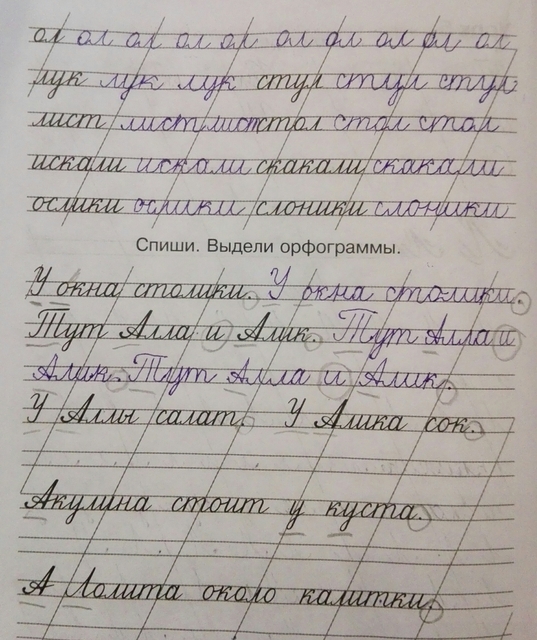 ол ол ол ол ол ол ол ол ол ол
лук лук лук стул стул стул
лист лист лист стол стол стол
искали искали скакали скакали
ослики ослики слоники слоники
Спиши. Выдели орфограммы.
У окна столики. У окна столики.
Тут Алла и Алик. Тут Алла и
Алик. Тут Алла и Алик.
У Аллы салат. У Алика сок.
Акулина стоит у куста.
А Лолита около калитки.